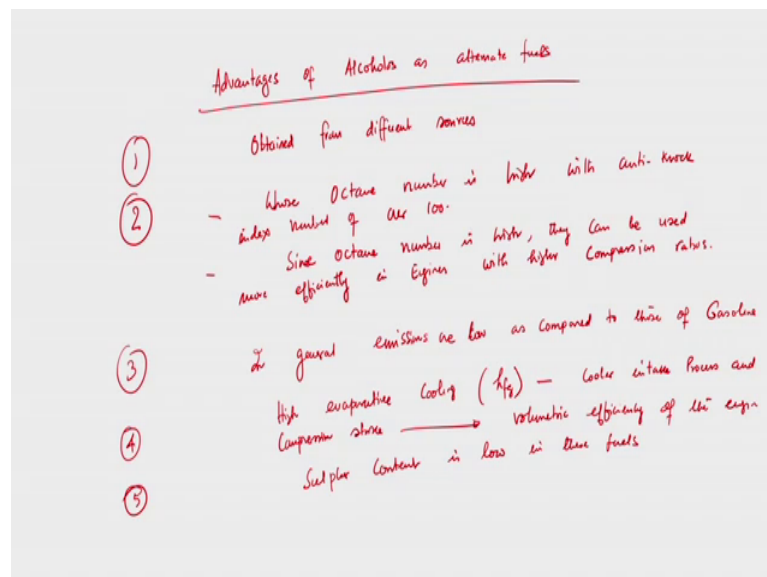 Advantages of Alcohols as alternate fuels
① Obtained from different sources
② - Whose Octane number is high with anti-knock
index number of over 100.
- Since octane number is high, they can be used
more efficiently in Engines with higher Compression ratios.
③ In general emissions are low as compared to those of Gasoline
④ High evaporative Cooling (hfg) – Cooler intake Process and
Compression stroke → volumetric efficiency of the engin
⑤ Sulphur Content is low in these fuels